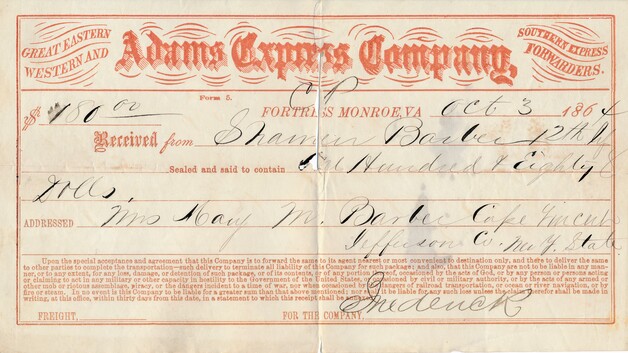 GREAT EASTERN
WESTERN AND
Adams Express Company,
SOUTHERN EXPRESS
FORWARDERS.
Form 5.
$ 180 00
FORTRESS MONROE, VA Oct 3 1864
Received from Barber 12th
Sealed and said to contain Hundred & Eighty
Dolls,
ADDRESSED Mrs Mary M. Barber Cape Vincent
Jefferson Co. New Y. State
Upon the special acceptance and agreement that this Company is to forward the same to its agent nearest or most convenient to destination only, and there to deliver the same
to other parties to complete the transportation—such delivery to terminate all liability of this Company for such package; and also, that this Company are not to be liable in any man-
ner, or to any extent, for any loss, damage, or detention of such package, or of its contents, or of any portion thereof, occasioned by the acts of God, or by any person or persons acting
or claiming to act in any military or other capacity in hostility to the Government of the United States, or occasioned by civil or military authority, or by the acts of any armed or
other mob or riotous assemblage, piracy, or the dangers incident to a time of war, nor when occasioned by the dangers of railroad transportation, or ocean or river navigation, or by
fire or steam. In no event is this Company to be liable for a greater sum than that above mentioned; nor shall it be liable for any such loss unless the claim therefor shall be made in
writing, at this office, within thirty days from this date, in a statement to which this receipt shall be annexed.
FREIGHT.
FOR THE COMPANY,
Frederick